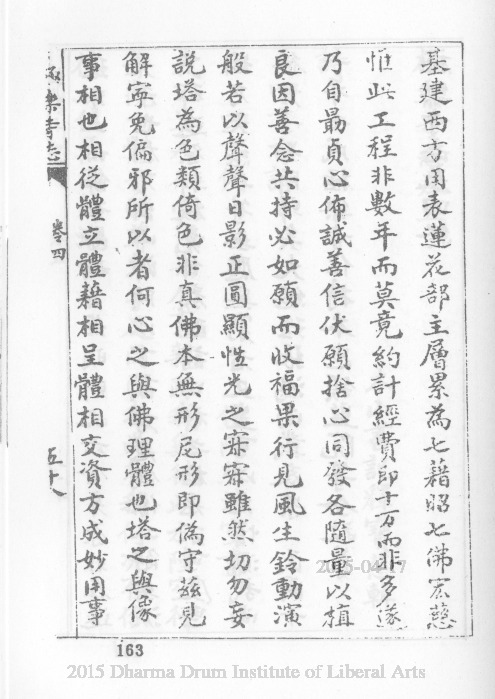 基建西方用表蓮花部主層累為七藉昭七佛宏慈
惟此工程非數年而莫竟約計經費即十万而非多遂
乃自勗貞心佈誠善信伏願捨心同發各隨量以植
良因善念共持必如願而收福果行見風生鈴動演
般若以聲聲日影正圓顯性光之寂寂雖然切勿妄
說塔為色類倚色非真佛本無形尼形即偽守茲見
解寧免偏邪所以者何心之與佛理體也塔之與像
事相也相從體立體藉相呈體相交資方成妙用事
極樂寺志
卷四
五十八
163
2025-04-17
2015 Dharma Drum Institute of Liberal Arts